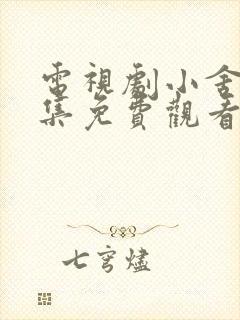 電視劇小舍
集免費觀看
七穹燼